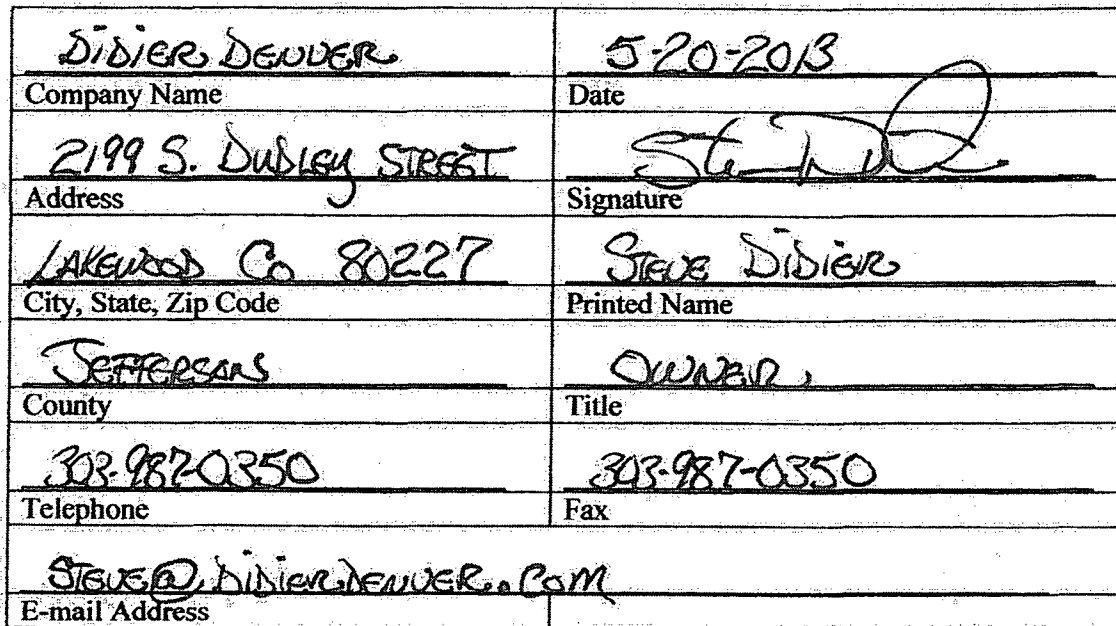 DIDIER DENVER 5-20-2013
Company Name Date
2199 S. DUDLEY STREET
Address Signature
LAKEWOOD CO 80227 STEVE DIDIER
City, State, Zip Code Printed Name
JEFFERSON OWNER
County Title
303-987-0350 303-987-0350
Telephone Fax
STEVE@DIDIERDENVER.COM
E-mail Address